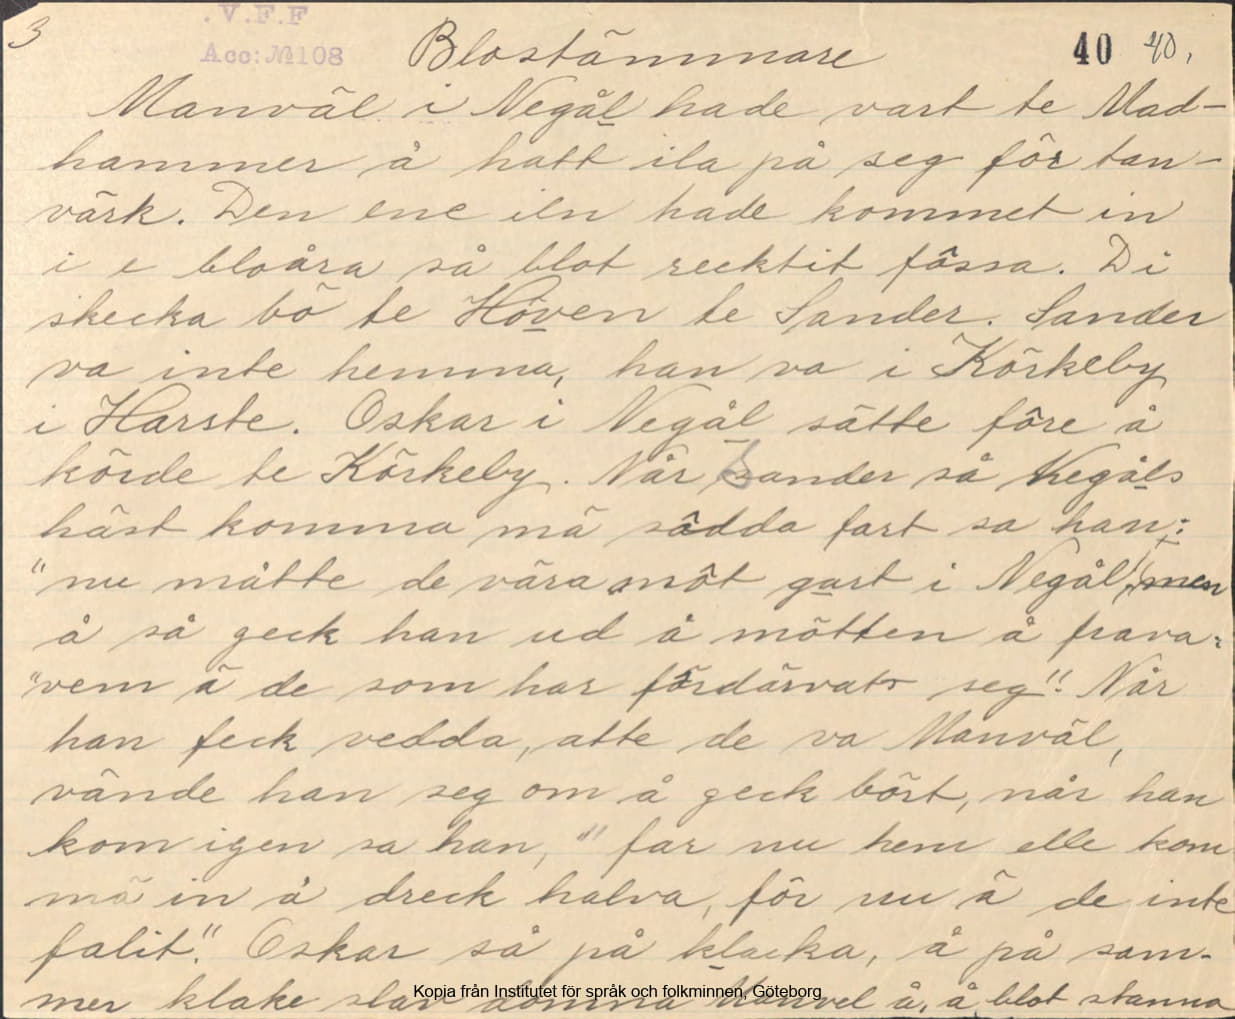 3
.V.F.F
Acc:№108
Blostämmare
40 40.
Manväl i Negål hade vart te Mad-
hammer å hatt ila på seg för tan-
värk. Den ene iln hade kommet in
i e bloåra så blot recktit fôssa. Di
skecka bö te Höven te Sander. Sander
va inte hemma, han va i Körkeby
i Harste. Oskar i Negål sätte före å
körde te Körkeby. Når Sander så Negåls
häst komma mä sådda fart sa han:
"nu måtte de vära nôt gart i Negål", men
å så geck han ud å mötten å frava:
"vem ä de som har fördärvat seg". Når
han feck vedda, atte de va Manväl,
vände han seg om å geck bört, når han
kom igen sa han, "far nu hem elle kom
mä in å dreck halva, för nu ä de inte
falit". Oskar så på klacka, å på sam-
mer klake slav domna Manvel å, å blot stanna
Kopia från Institutet för språk och folkminnen, Göteborg